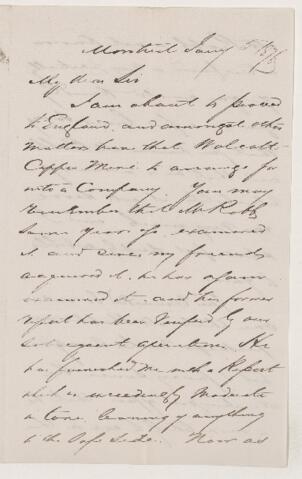 Montreal Jany 5
My dear Sir
I am about to proceed
to England, and amongst other
matters have that Wolcott
Copper Mine to arrange for
into a Company. You may
remember that Mr Robb
some years ago examined
it and since my friends
acquired it, he has again
examined it. and his former
report has been verified by our
subsequent operations. He
has furnished me with a Report
which is exceedingly moderate
in tone leaning if anything
to the safe side. Now as